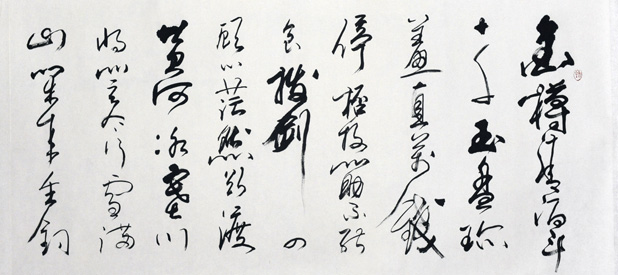 金樽清酒斗
十千玉盤珍
羞直萬錢
停杯投箸不能
食拔劍四
顧心茫然欲渡
黄河冰塞川
将登太行雪滿
山閑来垂釣